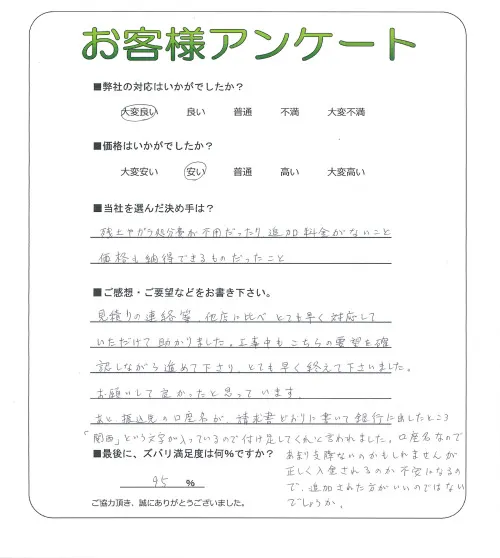 お客様アンケート
■弊社の対応はいかがでしたか?
大変良い 良い 普通 不満 大変不満
■価格はいかがでしたか?
大変安い 安い 普通 高い 大変高い
■当社を選んだ決め手は?
残土やガラ処分費が不用だったり追加料金がないこと
価格も納得できるものだったこと
■ご感想・ご要望などをお書き下さい。
見積りの連絡等、他店に比べとても早く対応して
いただけて助かりました。工事中もこちらの要望を確
認しながら進めて下さり、とても早く終えて下さいました。
お願いして良かったと思っています。
あと振込先の口座名が、請求書どおりに書いて銀行に出したところ
「関西」という文字が入っているので付け足してくれと言われました。口座名なので
あまり支障ないのかもしれませんが
正しく入金されるのか不安になるの
で、追加された方がいいのではない
でしょうか。
■最後に、ズバリ満足度は何%ですか?
95 %
ご協力頂き、誠にありがとうございました。